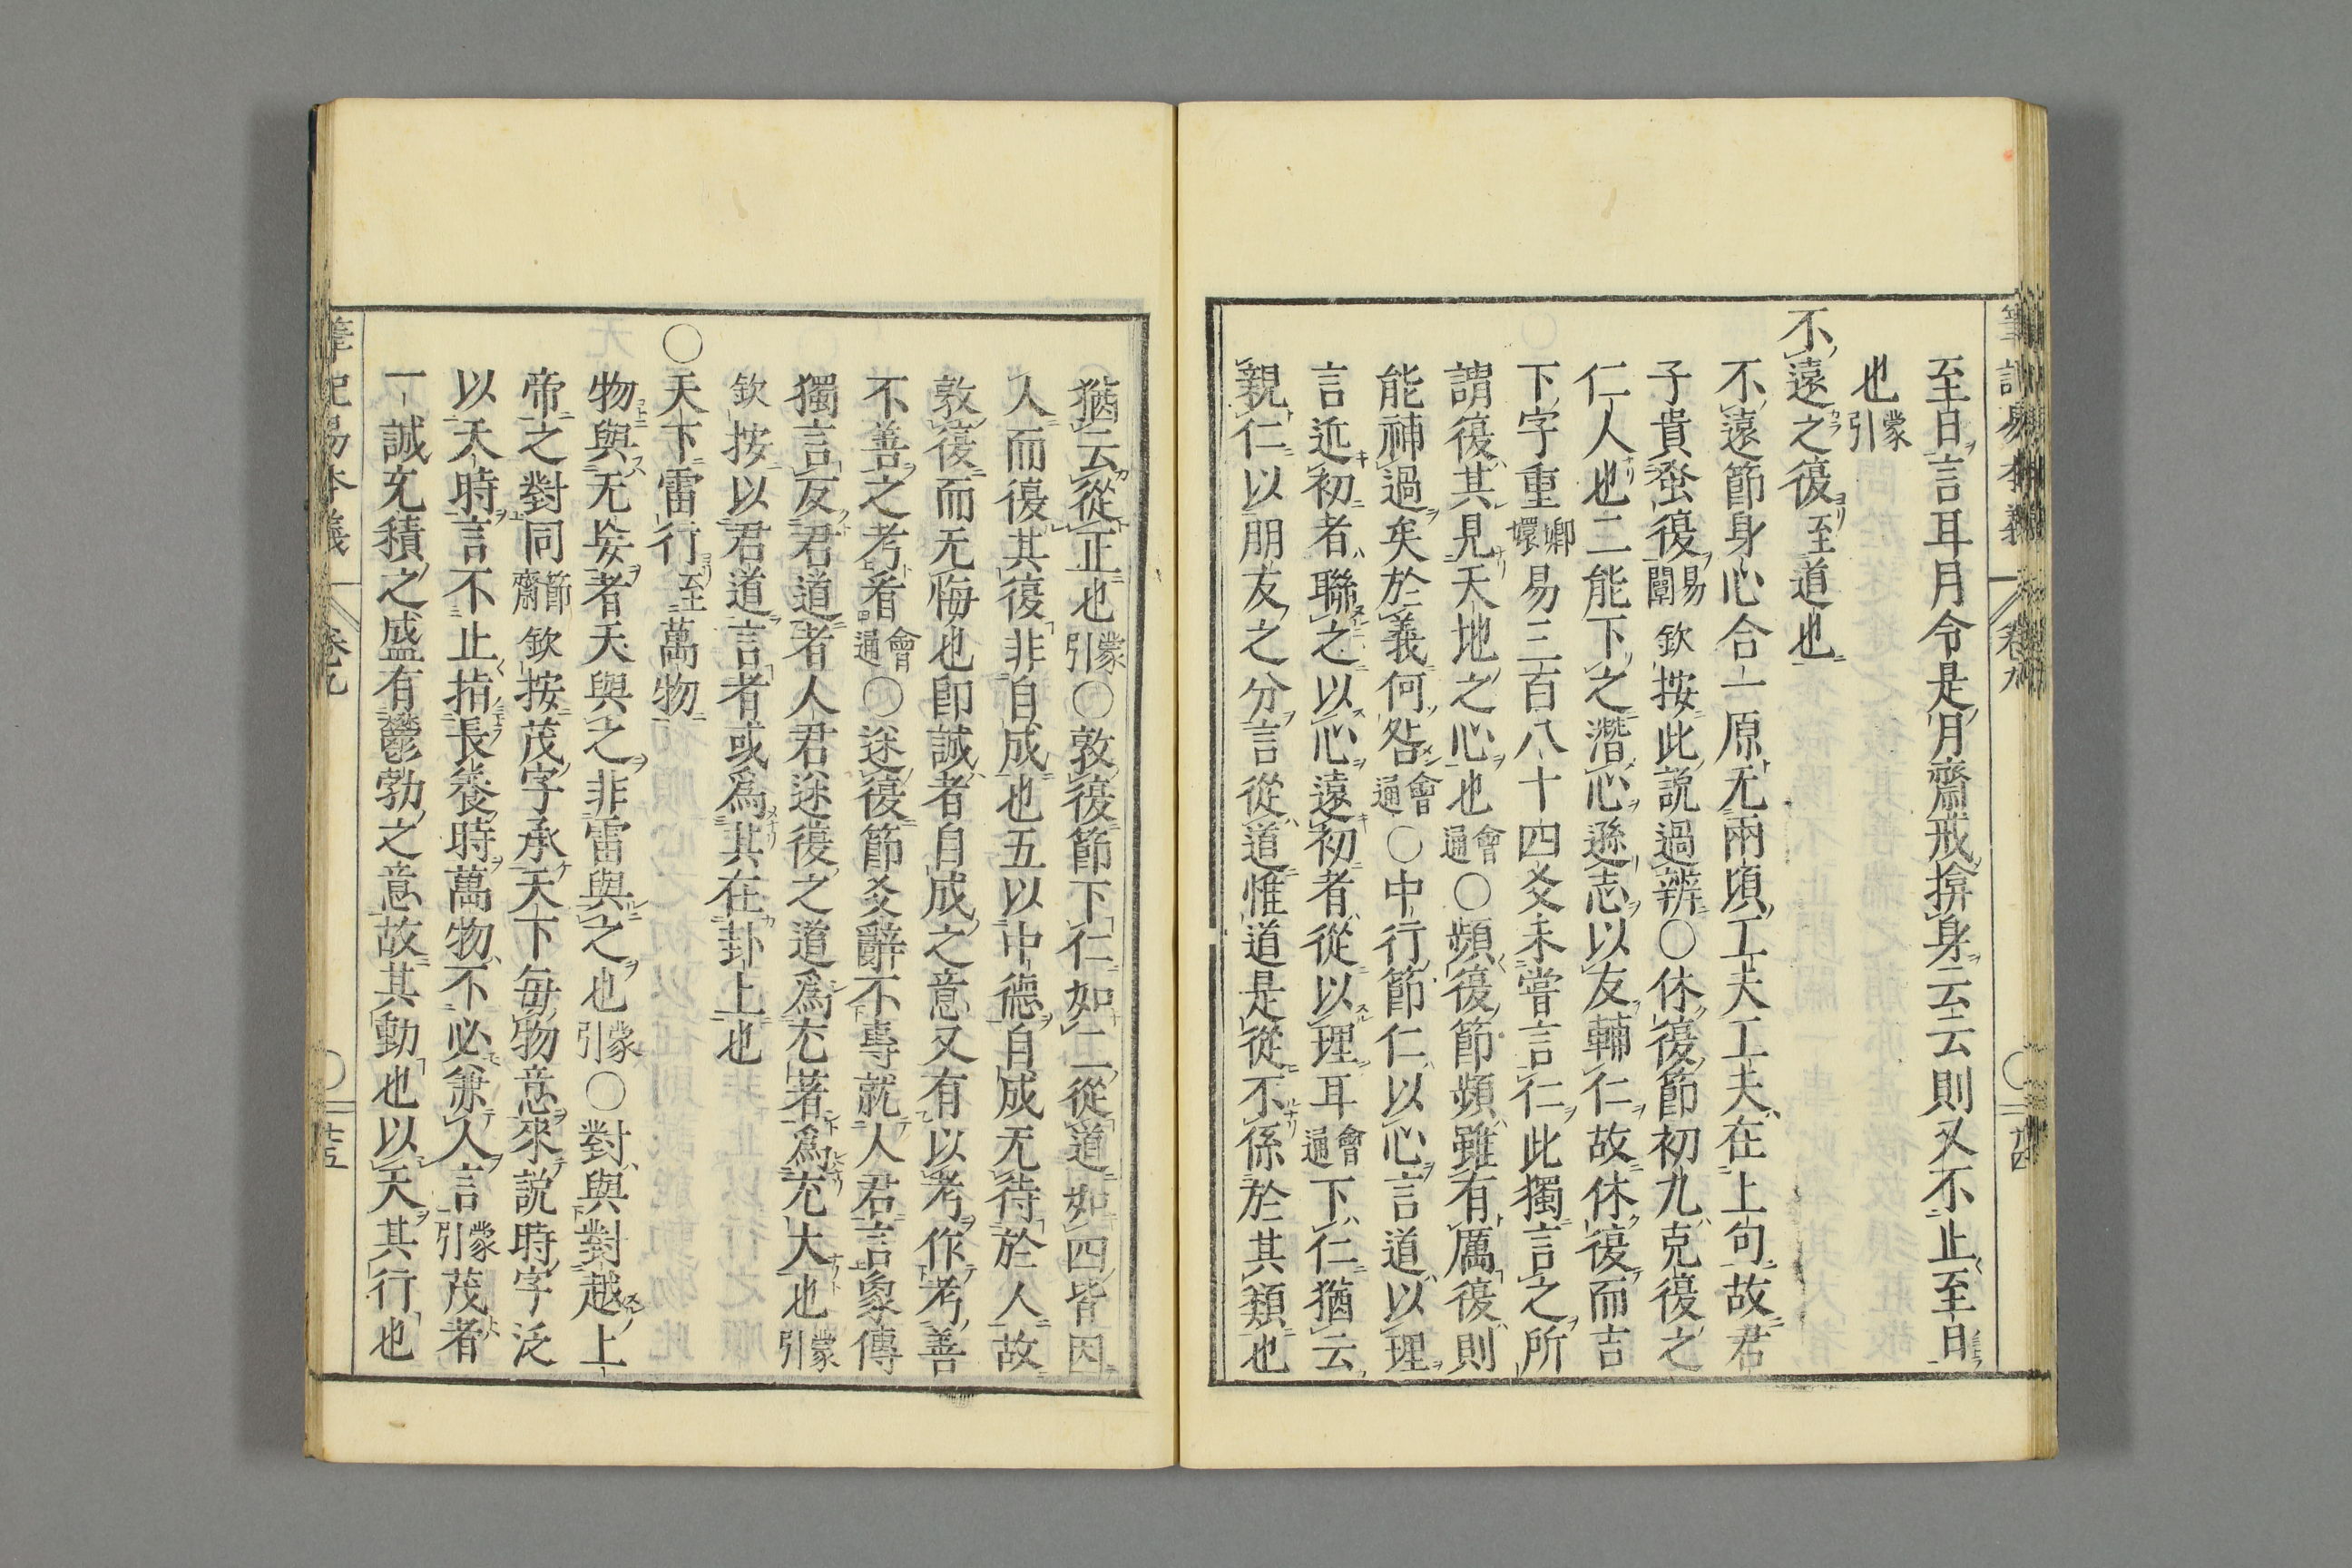 至日言耳月令是月齋戒揜身云云則又不止至日
也蒙引
不遠之復至道也
不遠節身心合一原无兩項工夫工夫在上句故君
子貴蚤復易闡欽按此説過辨〇休復節初九克復之
仁人也二能下之潛心遜志以友輔仁故休復而吉
下字重卿嬛易三百八十四爻未嘗言仁此獨言之所
謂復其見天地之心也會通〇頻復節頻雖有厲復則
能補過矣於義何咎會通〇中行節仁以心言道以理
言近初者聯之以心遠初者從以理耳會通下仁猶云
親仁以朋友之分言從道惟道是從不係於其類也
猶云從正也蒙引〇敦復節下仁如二從道如四皆因
人而復其復非自成也五以中德自成无待於人故
敦復而无悔也即誠者自成之意又有以考作考善
不善之考看會通〇迷復節爻辭不專就人君言象傳
獨言反君道者人君迷復之道爲尤著爲尤大也蒙引
欽按以君道言者或爲其在卦上也
〇天下雷行至萬物
物與无妄者天與之非雷與之也蒙引〇對與對越上
帝之對同節齋欽按茂字承天下每物意來説時字泛
以天時言不止指長養時萬物不必兼人言蒙引茂者
一誠充積之盛有鬱勃之意故其動也以天其行也